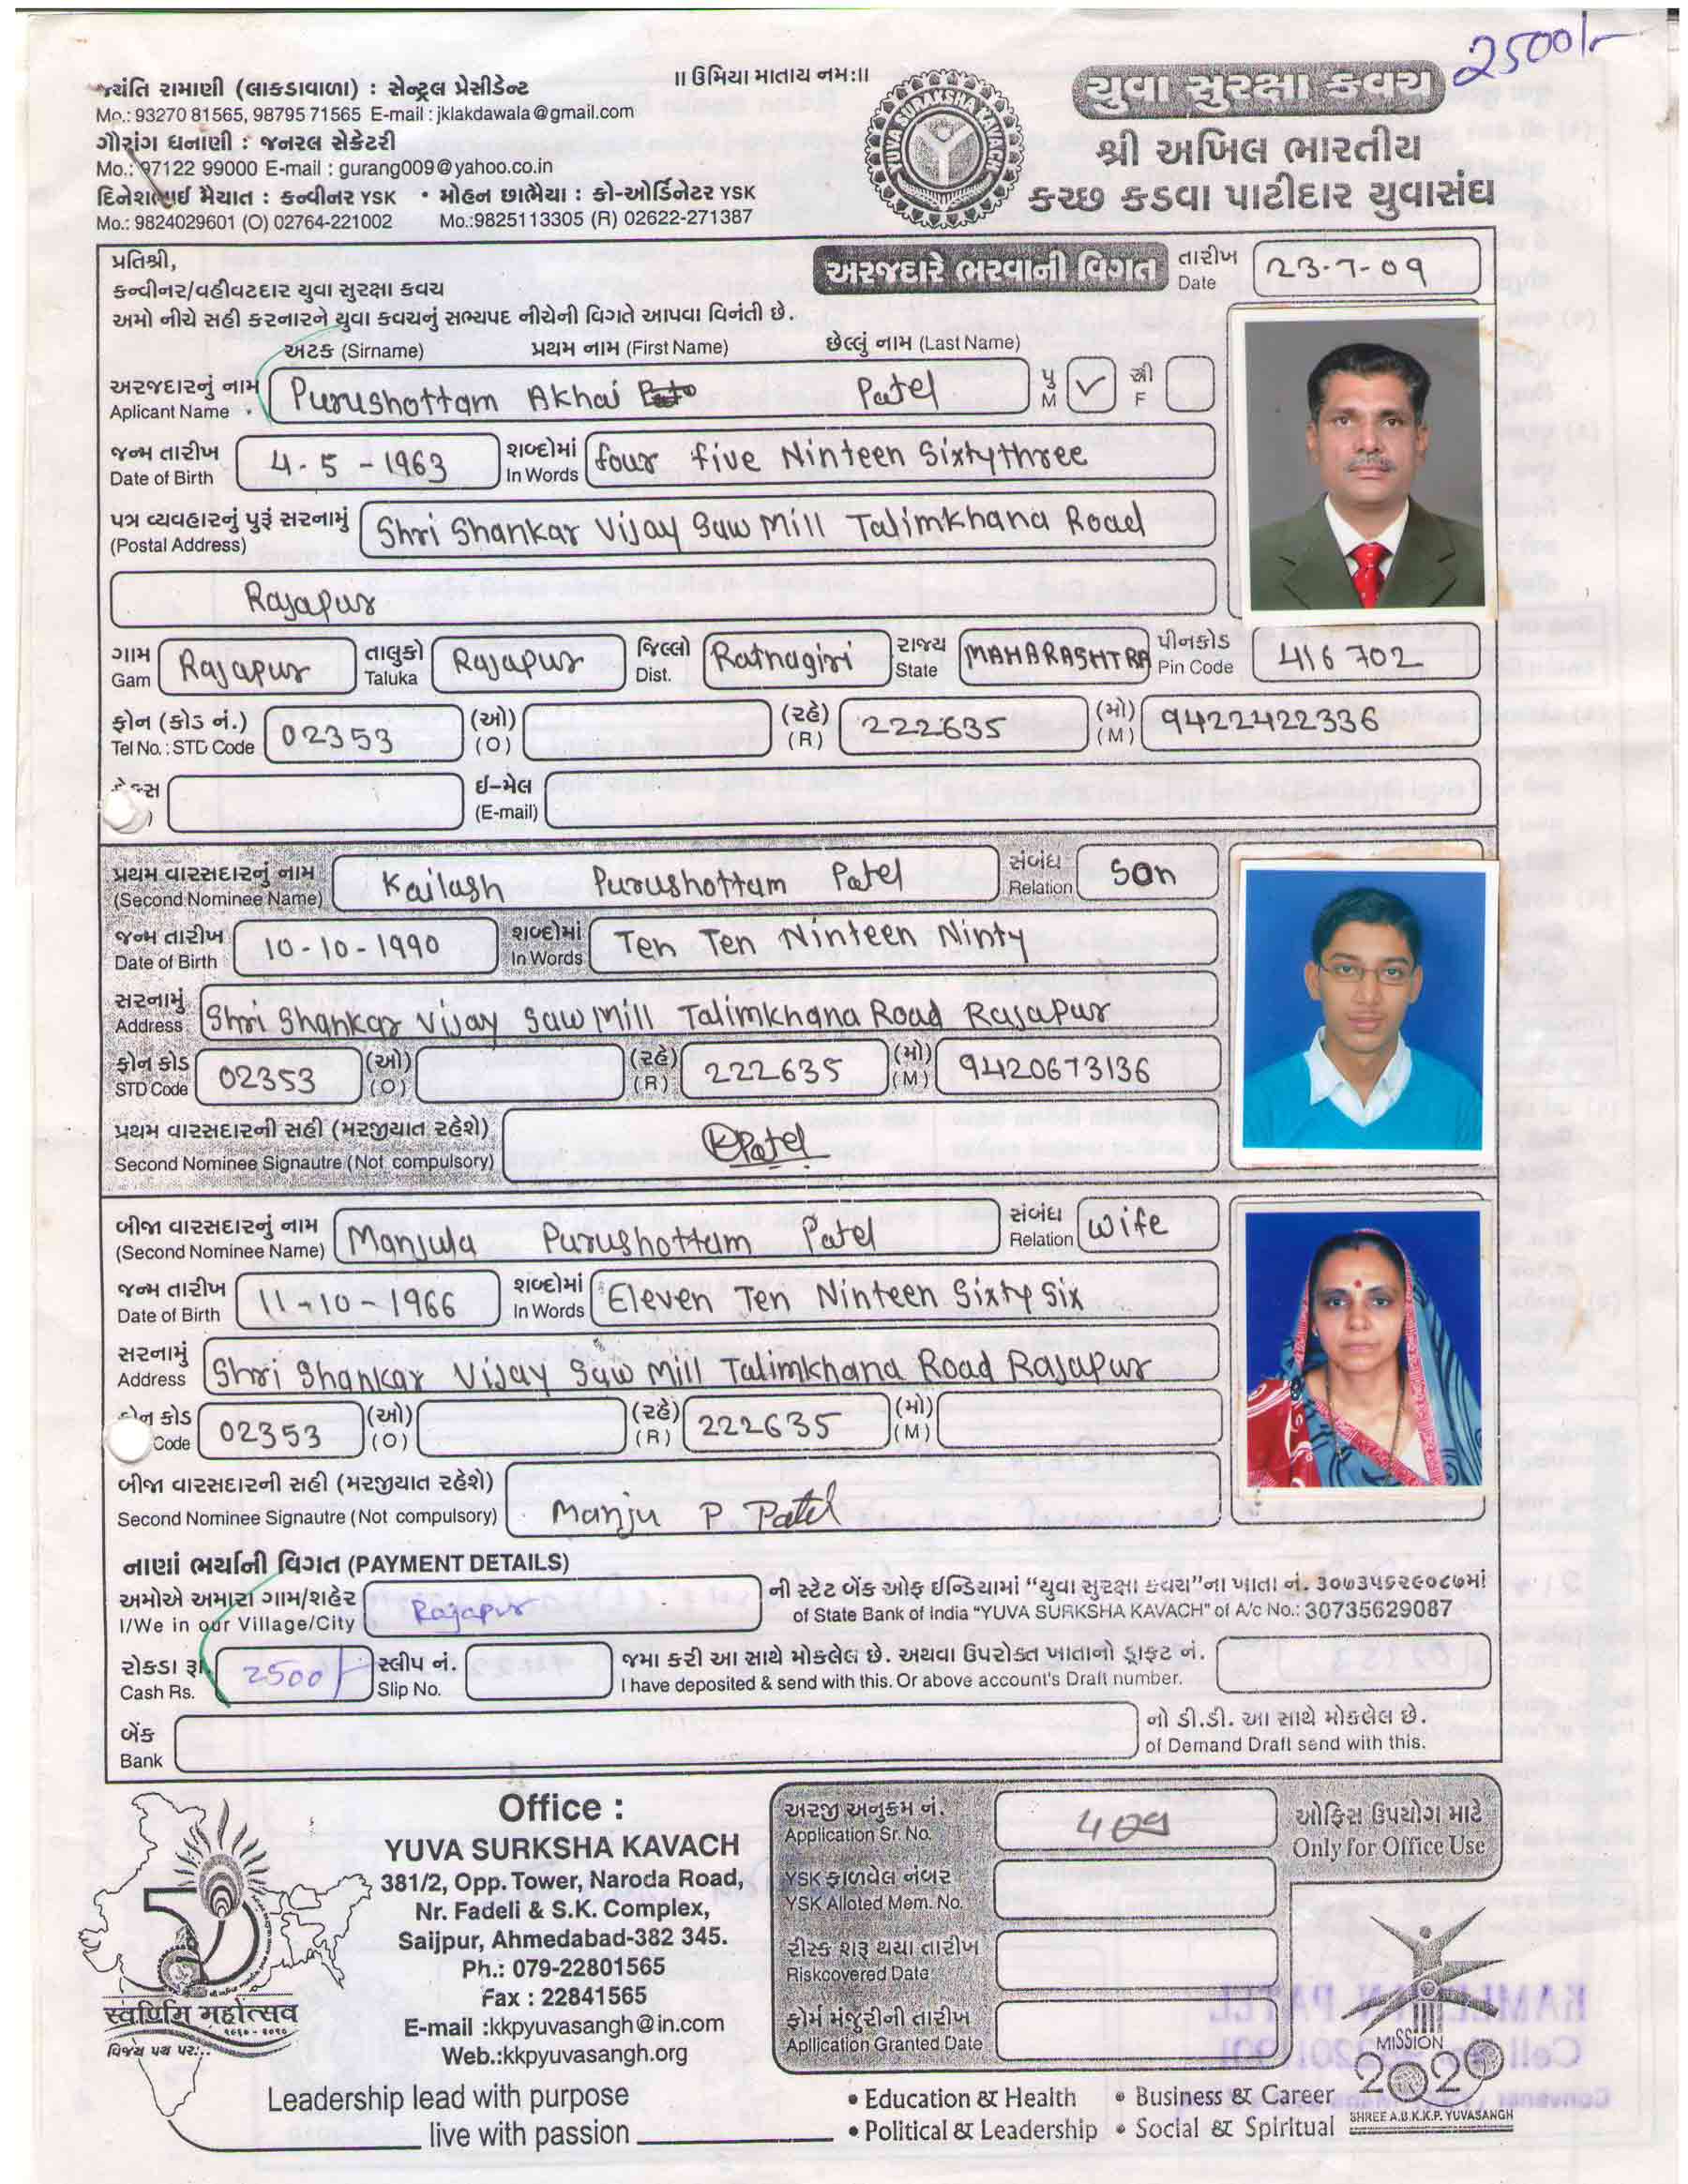 2500/-
જયંતિ રામાણી (લાકડાવાળા) : સેન્ટ્રલ પ્રેસીડેન્ટ
Mo.: 93270 81565, 98795 71565 E-mail : jklakdawala@gmail.com
ગૌરાંગ ધનાણી : જનરલ સેક્રેટરી
Mo.: 97122 99000 E-mail : gurang009@yahoo.co.in
દિનેશભાઈ મૈયાત : કન્વીનર YSK • મોહન છાભૈયા : કો-ઓર્ડિનેટર YSK
Mo.: 9824029601 (O) 02764-221002 Mo.:9825113305 (R) 02622-271387
॥ ઉમિયા માતાય નમઃ॥
YUVA SURAKSHA KAVACH
યુવા સુરક્ષા કવચ
શ્રી અખિલ ભારતીય
કચ્છ કડવા પાટીદાર યુવાસંઘ
પ્રતિશ્રી,
કન્વીનર/વહીવટદાર યુવા સુરક્ષા કવચ
અમો નીચે સહી કરનારને યુવા કવચનું સભ્યપદ નીચેની વિગતે આપવા વિનંતી છે.
અરજદારે ભરવાની વિગત તારીખ Date 23-7-09
અટક (Sirname) પ્રથમ નામ (First Name) છેલ્લું નામ (Last Name)
અરજદારનું નામ Aplicant Name Purushottam Akhai Patel પુ M ✓ સ્ત્રી F
જન્મ તારીખ Date of Birth 4-5-1963 શબ્દોમાં In Words four five Ninteen Sixtythree
પત્ર વ્યવહારનું પુરૂં સરનામું (Postal Address) Shri Shankar Vijay Saw Mill Talimkhana Road
Rajapur
ગામ Gam Rajapur તાલુકો Taluka Rajapur જિલ્લો Dist. Ratnagiri રાજ્ય State MAHARASHTRA પીનકોડ Pin Code 416 702
ફોન (કોડ નં.) Tel No.: STD Code 02353 (ઓ) (O) (રહે) (R) 222635 (મો) (M) 9422422336
ઈ-મેલ (E-mail)
પ્રથમ વારસદારનું નામ (Second Nominee Name) Kailash Purushottam Patel સંબંધ Relation Son
જન્મ તારીખ Date of Birth 10-10-1990 શબ્દોમાં In Words Ten Ten Ninteen Ninty
સરનામું Address Shri Shankar Vijay Saw Mill Talimkhana Road Rajapur
ફોન કોડ STD Code 02353 (ઓ) (O) (રહે) (R) 222635 (મો) (M) 9420673136
પ્રથમ વારસદારની સહી (મરજીયાત રહેશે)
Second Nominee Signautre (Not compulsory) KPatel
બીજા વારસદારનું નામ (Second Nominee Name) Manjula Purushottam Patel સંબંધ Relation Wife
જન્મ તારીખ Date of Birth 11-10-1966 શબ્દોમાં In Words Eleven Ten Ninteen Sixty Six
સરનામું Address Shri Shankar Vijay Saw Mill Talimkhana Road Rajapur
કોડ Code 02353 (ઓ) (O) (રહે) (R) 222635 (મો) (M)
બીજા વારસદારની સહી (મરજીયાત રહેશે)
Second Nominee Signautre (Not compulsory) Manju P Patel
નાણાં ભર્યાની વિગત (PAYMENT DETAILS)
અમોએ અમારા ગામ/શહેર Rajapur ની સ્ટેટ બેંક ઓફ ઈન્ડિયામાં “યુવા સુરક્ષા કવચ”ના ખાતા નં. ૩૦૭૩૫૬૨૯૦૮૭માં
I/We in our Village/City of State Bank of India "YUVA SURKSHA KAVACH" of A/c No.: 30735629087
રોકડા રૂા. Cash Rs. 2500/- સ્લીપ નં. Slip No. જમા કરી આ સાથે મોકલેલ છે. અથવા ઉપરોક્ત ખાતાનો ડ્રાફ્ટ નં.
I have deposited & send with this. Or above account's Draft number.
બેંક Bank નો ડી.ડી. આ સાથે મોકલેલ છે.
of Demand Draft send with this.
50
स्वर्णिम महोत्सव
૧૯૬૦ - ૨૦૧૦
વિજય પથ પર...
Office :
YUVA SURKSHA KAVACH
381/2, Opp. Tower, Naroda Road,
Nr. Fadeli & S.K. Complex,
Saijpur, Ahmedabad-382 345.
Ph.: 079-22801565
Fax : 22841565
E-mail :kkpyuvasangh@in.com
Web.:kkpyuvasangh.org
અરજી અનુક્રમ નં. Application Sr. No. 409
YSK ફાળવેલ નંબર YSK Alloted Mem. No.
રીસ્ક શરૂ થયા તારીખ Riskcovered Date
ફોર્મ મંજુરીની તારીખ Apllication Granted Date
ઓફિસ ઉપયોગ માટે
Only for Office Use
MISSION
2020
SHREE A.B.K.K.P. YUVASANGH
Leadership lead with purpose
live with passion
• Education & Health • Business & Career
• Political & Leadership • Social & Spiritual